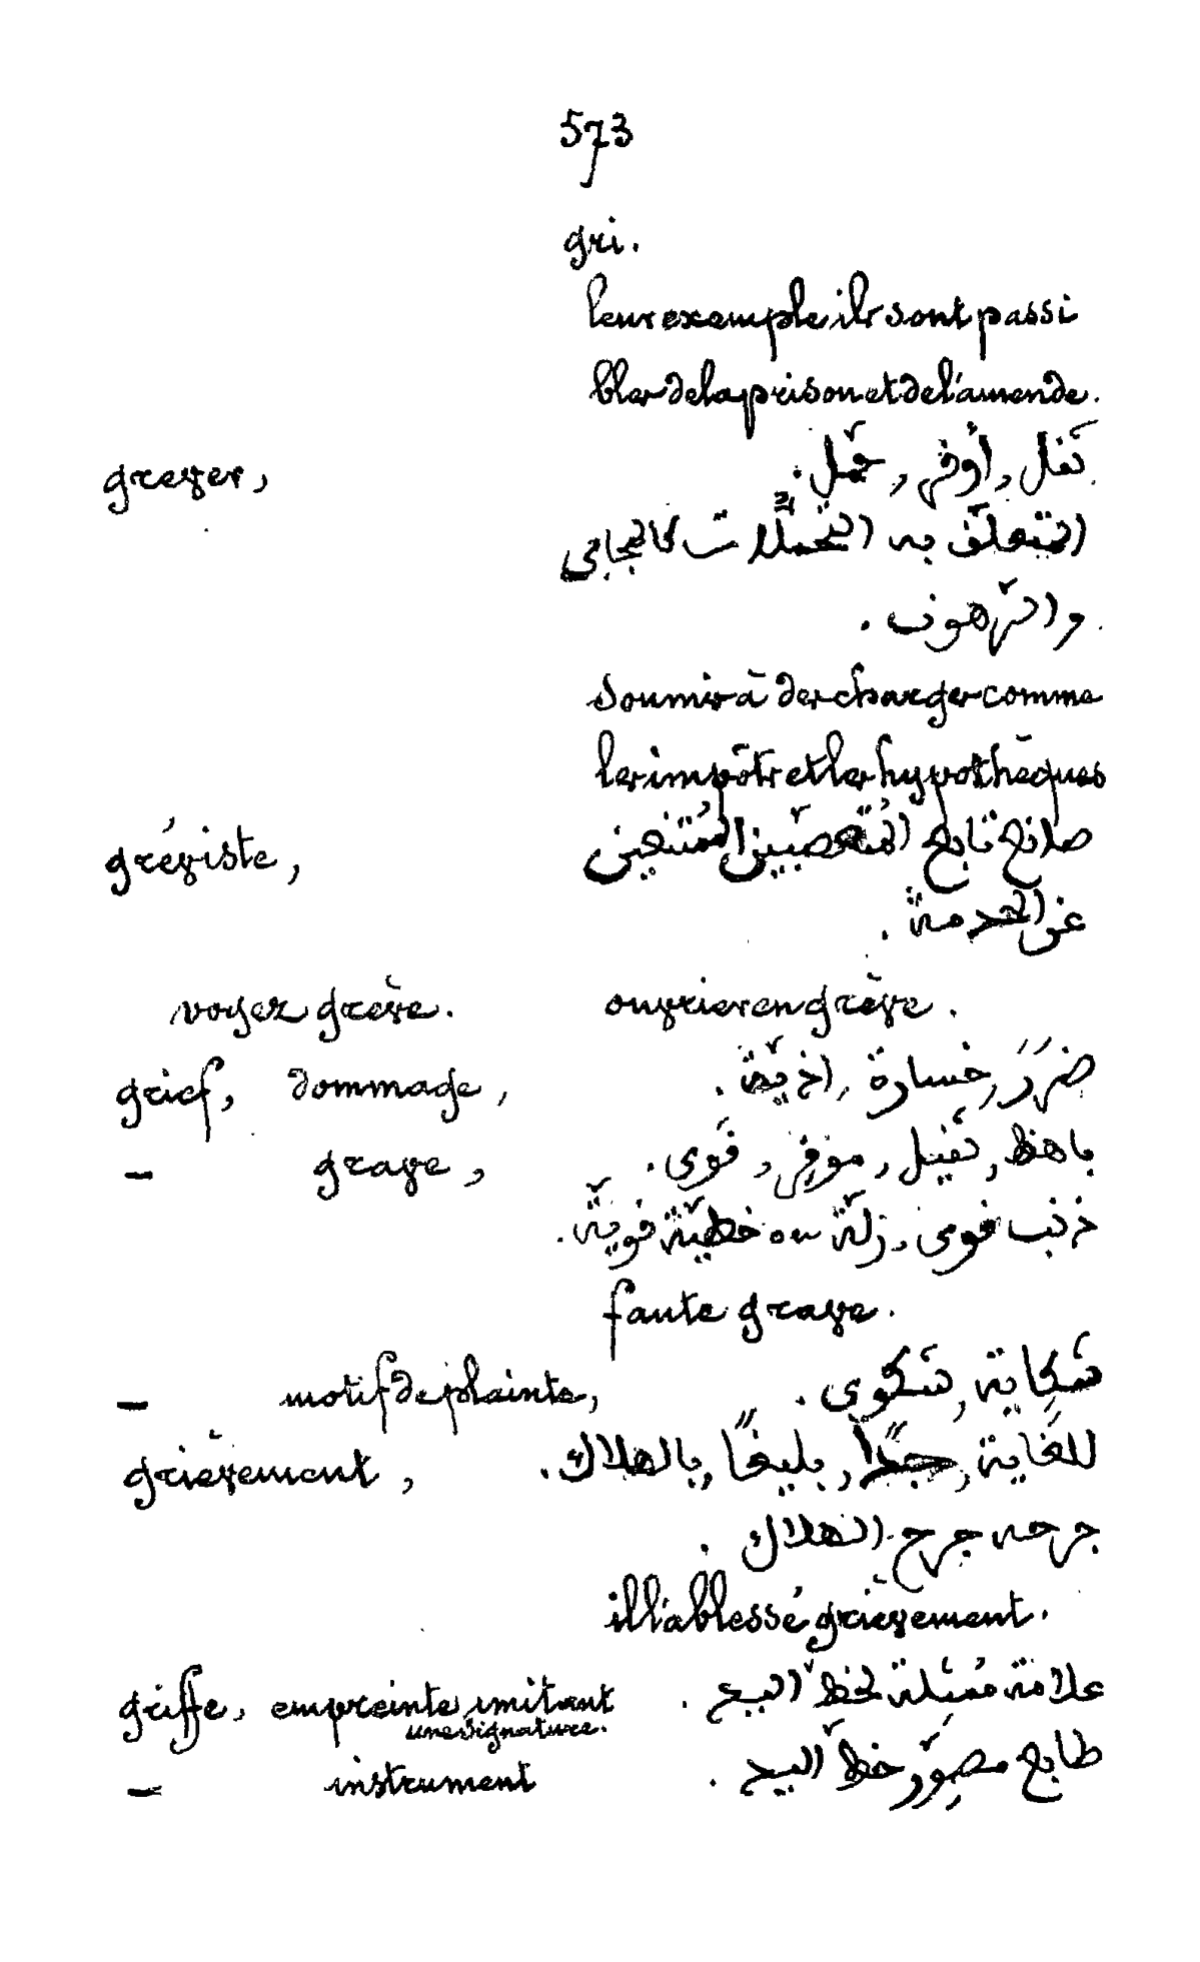 573
gri.
leur exemple ils sont passi
bles de la prison et de l'amende.
grever, ثقل, أوقر, حمّل.
المتعلّق به التحمّلات كالمجابي
والرهون.
soumis à des charges comme
les impôts et les hypothèques
gréviste, صانع تابع المتعصّبين الممتنعين
عن الخدمة.
voyez grève. ouvrier en grève.
grief, dommage, ضَرَر, خسارة, اذيّة.
— grave, باهظ, ثقيل, موقر, قوى.
ذنب قوى, زلّة ou خطيّة قويّة.
faute grave.
— motif de plainte, شكاية, شكوى.
grièvement, للغاية, جدًّا, بليغًا, بالهلاك.
جرحه جرح الهلاك.
il l'a blessé grièvement.
griffe, empreinte imitant علامة ممثلة لخطّ اليد.
une signature.
— instrument طابع مصوّر خطّ اليد.